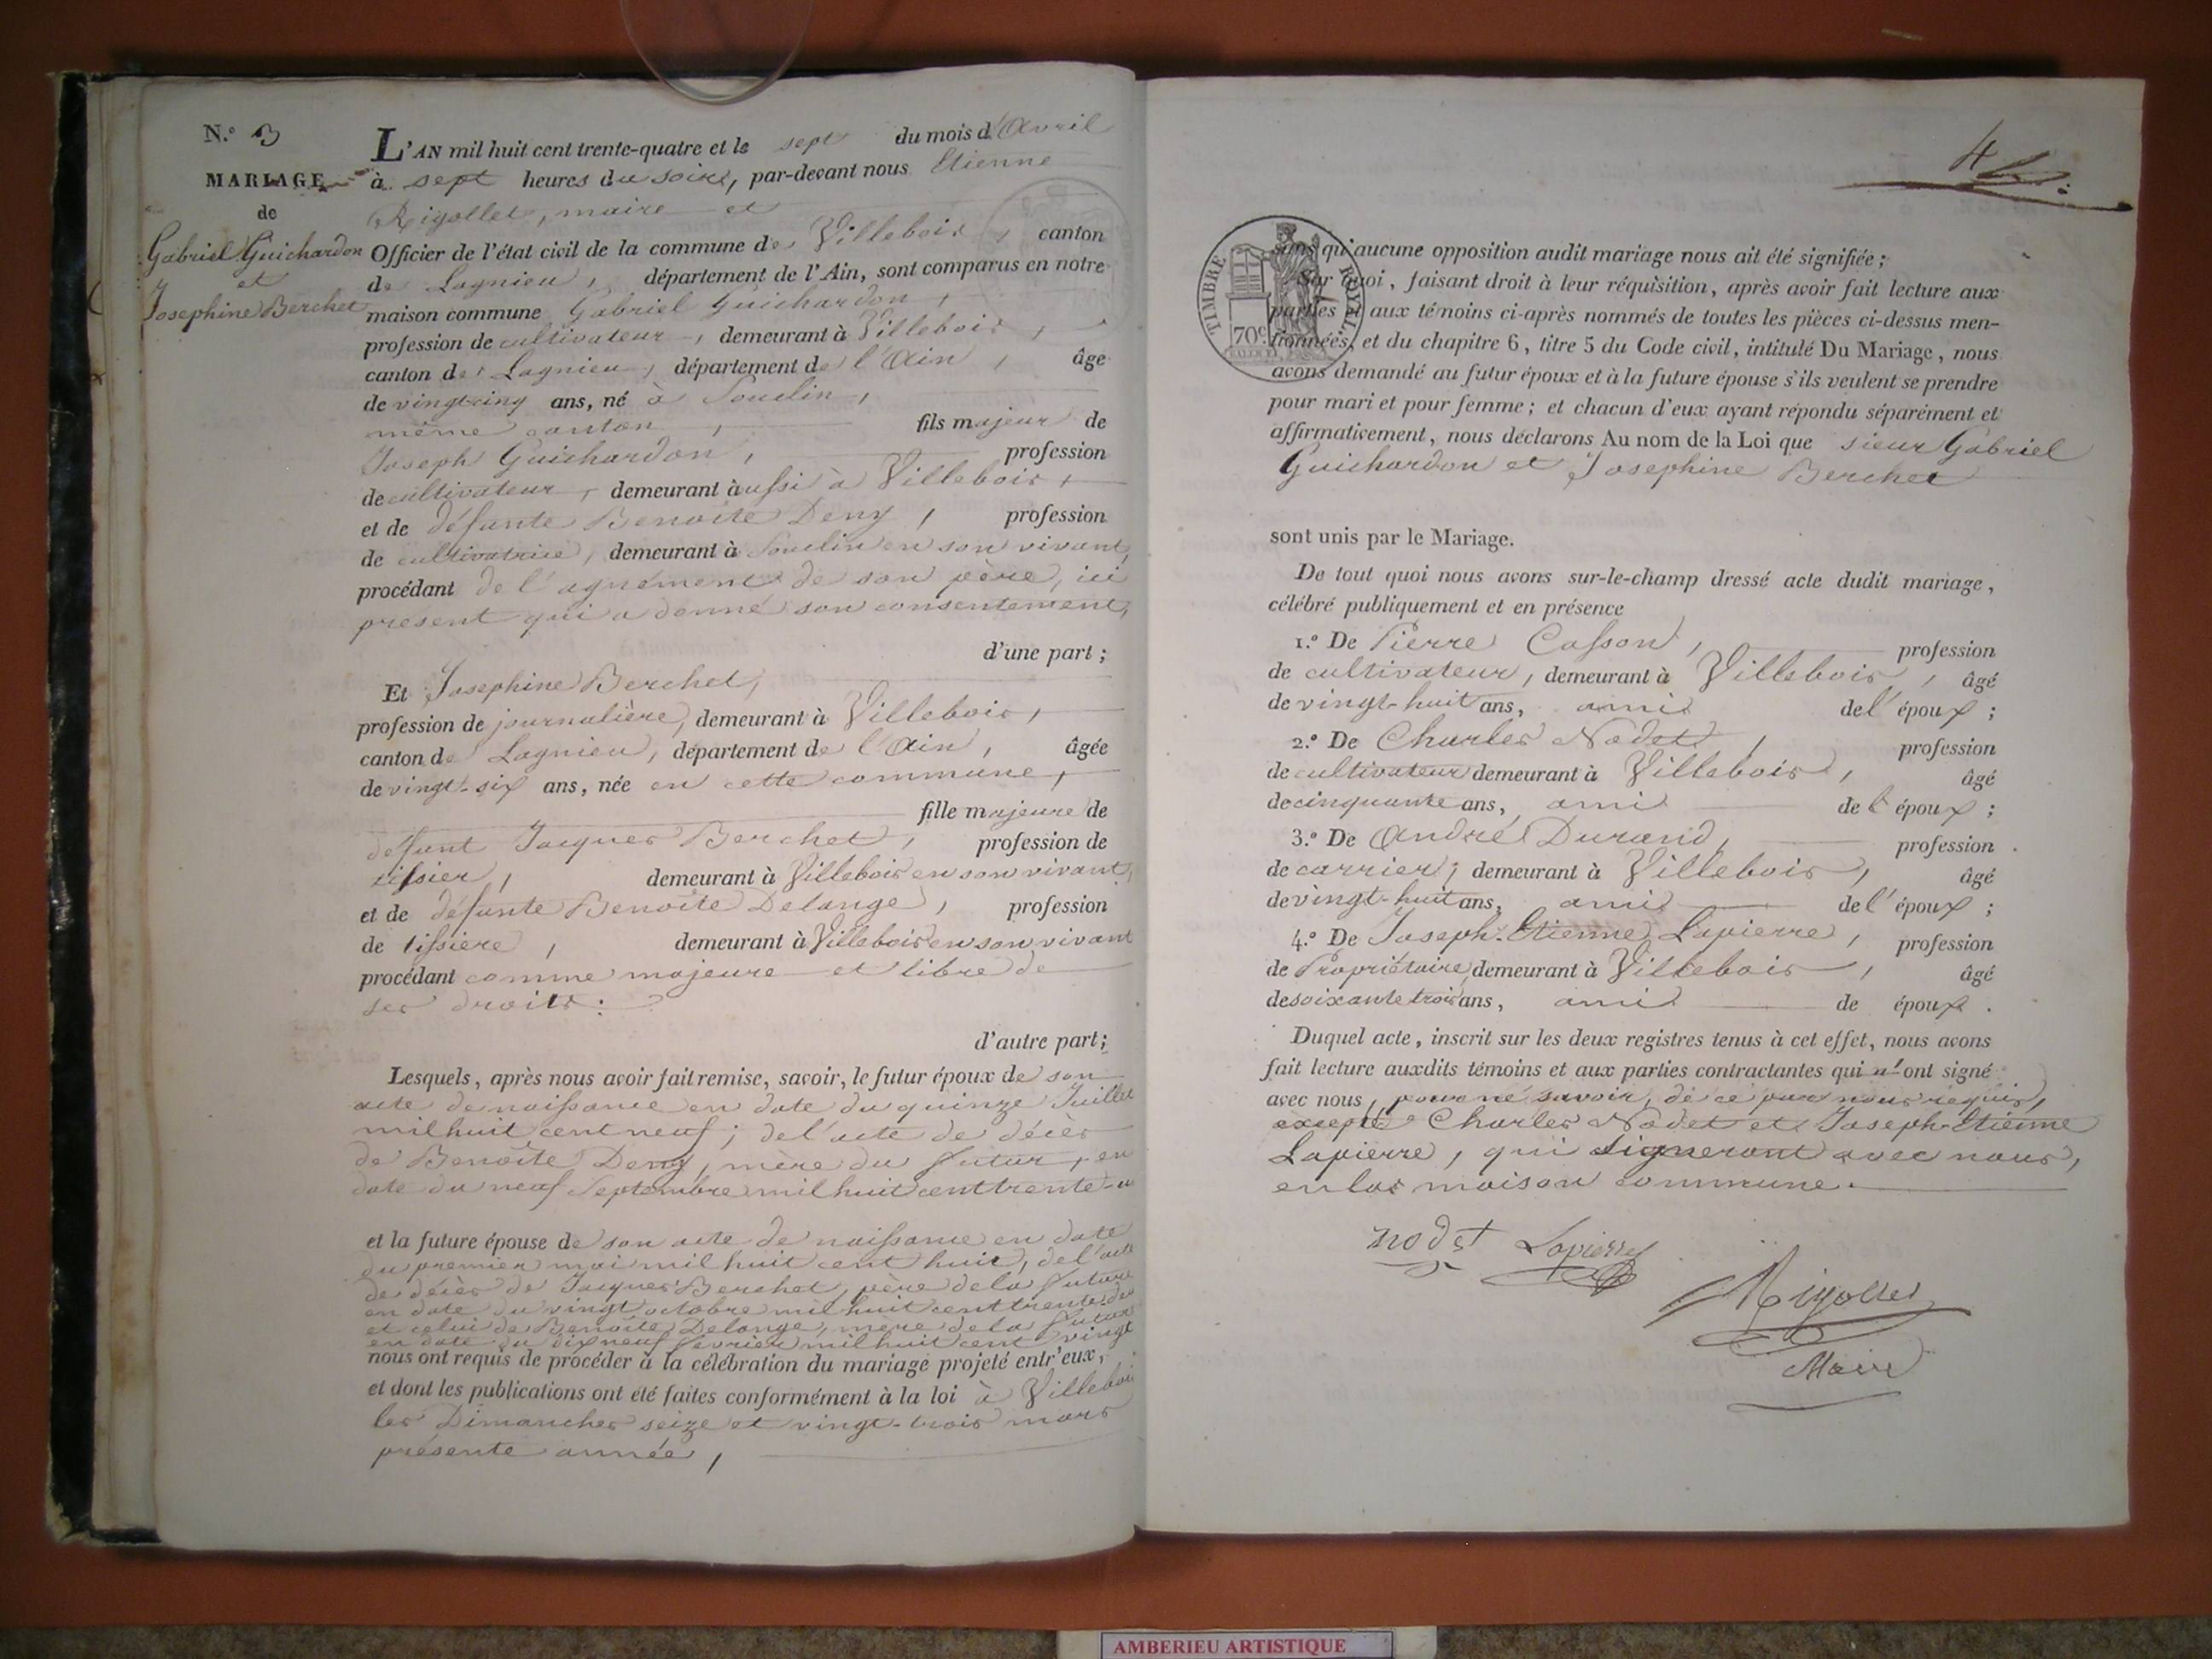 N.º 3
MARIAGE
de
Gabriel Guichardon
et
Josephine Berchet
L'AN mil huit cent trente-quatre et le sept du mois d'Avril
à sept heures du soire, par-devant nous Etienne
Rigollet, maire et
Officier de l'état civil de la commune de Villebois, canton
de Lagnieu, département de l'Ain, sont comparus en notre
maison commune Gabriel Guichardon,
profession de cultivateur, demeurant à Villebois,
canton de Lagnieu, département de l'Ain, âgé
de vingt-cinq ans, né à Souclin,
même canton, fils majeur de
Joseph Guichardon, profession
de cultivateur, demeurant aussi à Villebois,
et de défunte Benoite Deny, profession
de cultivatrice, demeurant à Souclin en son vivant,
procédant de l'agrément de son père, ici
present qui a donné son consentement,
d'une part ;
Et Josephine Berchet,
profession de journalière, demeurant à Villebois,
canton de Lagnieu, département de l'Ain, âgée
de vingt-six ans, née en cette commune,
fille majeure de
défunt Jacques Berchet, profession de
tissier, demeurant à Villebois en son vivant,
et de défunte Benoite Delange, profession
de tissiere, demeurant à Villebois en son vivant
procédant comme majeure et libre de
ses droits :
d'autre part ;
Lesquels, après nous avoir fait remise, savoir, le futur époux de son
acte de naissance en date du quinze Juillet
mil huit cent neuf ; de l'acte de décès
de Benoite Deny, mère du futur, en
date du neuf Septembre mil huit cent trente-u
et la future épouse de son acte de naissance en date
du premier mai mil huit cent huit, de l'acte
de décès de Jacques Berchet, père de la future
en date du vingt octobre mil huit cent trente-deu
et celui de Benoite Delange, mère de la future
en date du dix neuf fevrier mil huit cent vingt
nous ont requis de procéder à la célébration du mariage projeté entr'eux,
et dont les publications ont été faites conformément à la loi à Villeboi
les Dimanches seize et vingt-trois mars
présente année,
4
TIMBRE ROYAL
70c.
sans qu'aucune opposition audit mariage nous ait été signifiée ;
Sur quoi, faisant droit à leur réquisition, après avoir fait lecture aux
parties et aux témoins ci-après nommés de toutes les pièces ci-dessus men-
tionnées, et du chapitre 6, titre 5 du Code civil, intitulé Du Mariage, nous
avons demandé au futur époux et à la future épouse s'ils veulent se prendre
pour mari et pour femme ; et chacun d'eux ayant répondu séparément et
affirmativement, nous déclarons Au nom de la Loi que sieur Gabriel
Guichardon et Josephine Berchet
sont unis par le Mariage.
De tout quoi nous avons sur-le-champ dressé acte dudit mariage,
célébré publiquement et en présence
1.º De Pierre Casson, profession
de cultivateur, demeurant à Villebois, âgé
de vingt-huit ans, ami de l'époux ;
2.º De Charles Nodet, profession
de cultivateur demeurant à Villebois, âgé
de cinquante ans, ami de l'époux ;
3.º De André Durand, profession
de carrier, demeurant à Villebois, âgé
de vingt-huit ans, ami de l'époux ;
4.º De Joseph-Etienne Lapierre, profession
de Propriétaire, demeurant à Villebois, âgé
de soixante trois ans, ami de époux.
Duquel acte, inscrit sur les deux registres tenus à cet effet, nous avons
fait lecture auxdits témoins et aux parties contractantes qui n'ont signé
avec nous, pour ne savoir, de ce par nous requis,
excepté Charles Nodet et Joseph-Etienne
Lapierre, qui signeront avec nous,
en las maison commune.
nodet Lapierre
Rigollet
Maire
AMBERIEU ARTISTIQUE